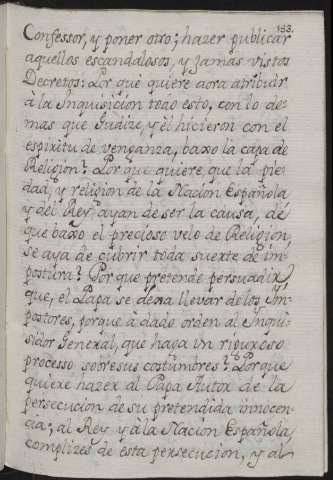 188.
Confessor, y poner otro; hazer publicar
aquellos escandalosos, y jamas vistos
Decretos: Por què quiere aora atribuir
à la Inquisicion todo esto, con lo de-
mas que Iudize, y èl hicieron con el
espiritu de venganza, baxo la capa de
Religion? Por que quiere, que la pie-
dad, y religion de la Nacion Española
y del Rey ayan de ser la causa, de
que baxo el precioso velo de Religion,
se aya de cubrir toda suerte de im-
postura? Por que pretende persuadir,
que, el Papa se dexa llevar de los Im-
postores, porque à dado orden al Inqui-
sidor General, que haga un riguroso
processo sobre sus costumbres? Porque
quiere hazer al Papa Autor de la
persecucion de su pretendida innocen-
cia; al Rey y à la Nacion Española
complizes de esta persecucion, y al